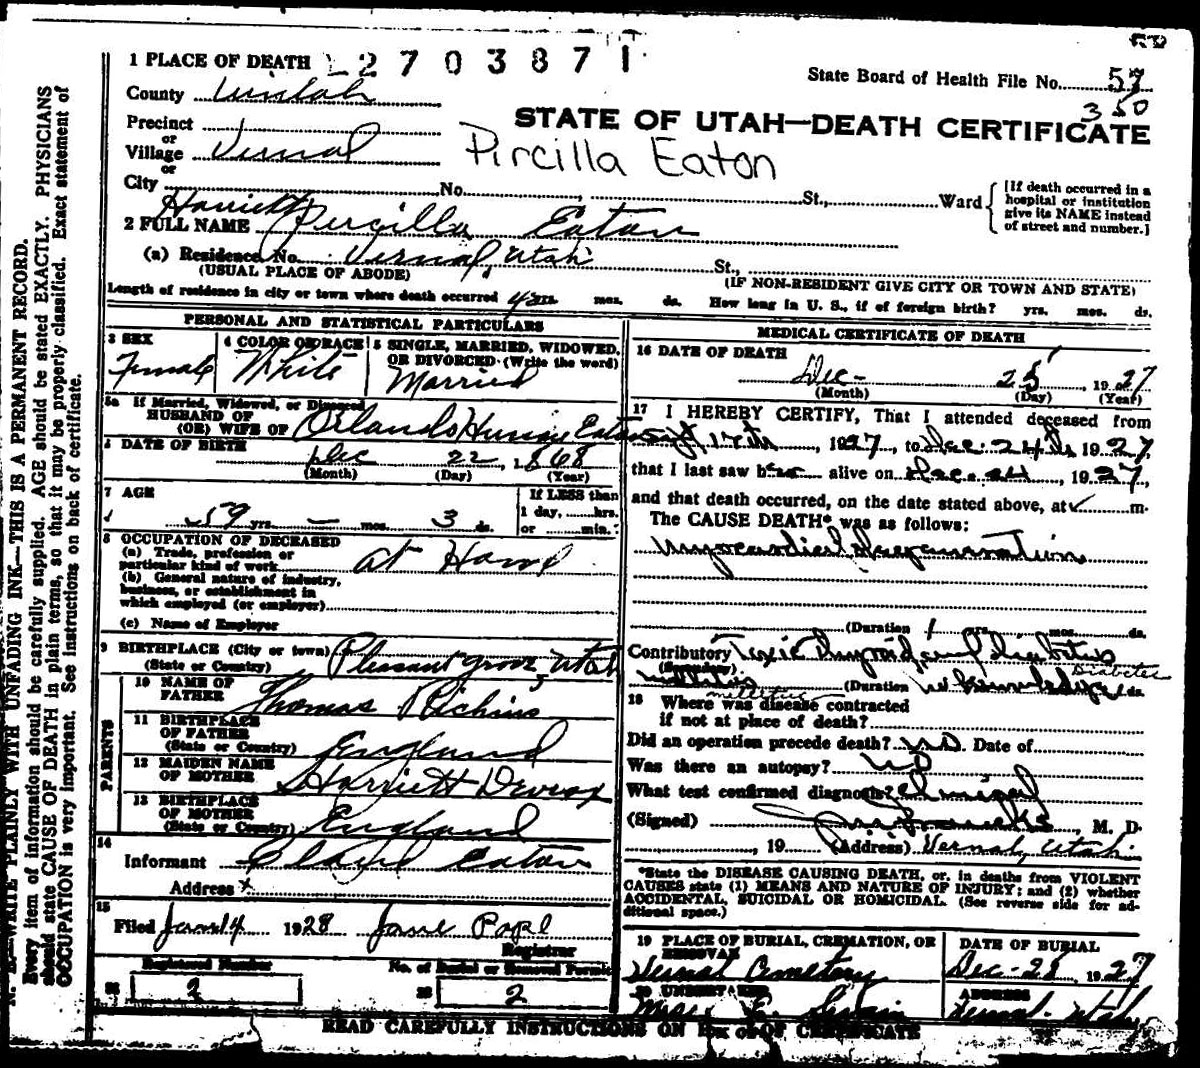 1 PLACE OF DEATH 2703871
State Board of Health File No. 57
350
County Uintah
STATE OF UTAH—DEATH CERTIFICATE
Precinct
or
Village Vernal
Pircilla Eaton
or
City No. St., Ward
[If death occurred in a hospital or institution give its NAME instead of street and number.]
Harriett
2 FULL NAME Percilla Eaton
(a) Residence No. Vernal, Utah St.,
(USUAL PLACE OF ABODE) (IF NON-RESIDENT GIVE CITY OR TOWN AND STATE)
Length of residence in city or town where death occurred yrs. mos. ds. How long in U. S., if of foreign birth? yrs. mos. ds.
PERSONAL AND STATISTICAL PARTICULARS
3 SEX Female
4 COLOR OR RACE White
5 SINGLE, MARRIED, WIDOWED, OR DIVORCED (Write the word) Married
5a If Married, Widowed, or Divorced
HUSBAND OF
(OR) WIFE OF Orlando Eaton
6 DATE OF BIRTH Dec 22, 1868
(Month) (Day) (Year)
7 AGE 59 yrs. — mos. 3 ds.
If LESS than
1 day, hrs.
or min.
8 OCCUPATION OF DECEASED
(a) Trade, profession or
particular kind of work at Home
(b) General nature of industry,
business, or establishment in
which employed (or employer)
(c) Name of Employer
9 BIRTHPLACE (City or town) Pleasant grove, Utah
(State or Country)
PARENTS
10 NAME OF
FATHER Thomas Richins
11 BIRTHPLACE
OF FATHER
(State or Country) England
12 MAIDEN NAME
OF MOTHER Harriett
13 BIRTHPLACE
OF MOTHER
(State or Country) England
14
Informant Clayd Eaton
Address
15
Filed Jan 14 1928 Jane Pope
Registrar
Registered Number
2
No. of Burial or Removal Permit
2
MEDICAL CERTIFICATE OF DEATH
16 DATE OF DEATH
Dec- 25, 1927
(Month) (Day) (Year)
17 I HEREBY CERTIFY, That I attended deceased from
Sept 17th, 1927, to Dec. 24th 1927,
that I last saw her alive on Dec. 24, 1927,
and that death occurred, on the date stated above, at m.
The CAUSE DEATH* was as follows:
Myocardial Degeneration
(Duration 1 yrs. mos. ds.
Contributory Toxic Thyroid and Diabetus
(Secondary) mellitus (Duration ds.
Diabetes
mellitus
18 Where was disease contracted
if not at place of death?
Did an operation precede death? no. Date of
Was there an autopsy? no
What test confirmed diagnosis? Clinical
(Signed) , M. D.
, 19 (Address) Vernal, Utah.
*State the DISEASE CAUSING DEATH, or, in deaths from VIOLENT
CAUSES state (1) MEANS AND NATURE OF INJURY; and (2) whether
ACCIDENTAL, SUICIDAL OR HOMICIDAL. (See reverse side for ad-
ditional space.)
19 PLACE OF BURIAL, CREMATION, OR
REMOVAL
Vernal Cemetery
DATE OF BURIAL
Dec-28, 1927
20 UNDERTAKER
ADDRESS
Vernal-Utah
READ CAREFULLY INSTRUCTIONS ON OF CERTIFICATE
N. B.—WRITE PLAINLY WITH UNFADING INK—THIS IS A PERMANENT RECORD.
Every item of information should be carefully supplied. AGE should be stated EXACTLY. PHYSICIANS
should state CAUSE OF DEATH in plain terms, so that it may be properly classified. Exact statement of
OCCUPATION is very important. See instructions on back of certificate.